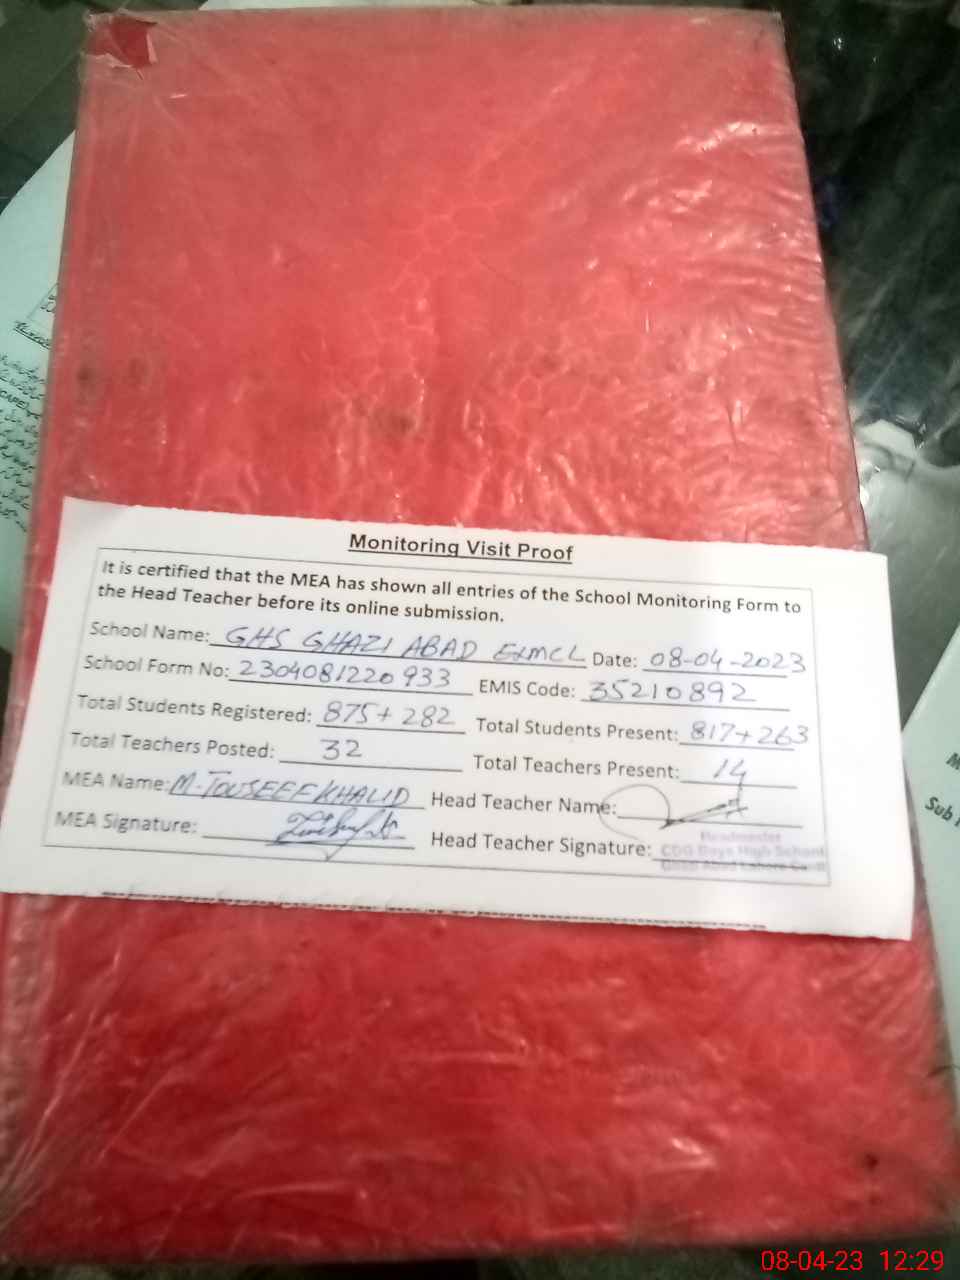 Monitoring Visit Proof
It is certified that the MEA has shown all entries of the School Monitoring Form to
the Head Teacher before its online submission.
School Name: GHS GHAZI ABAD EXMCL Date: 08-04-2023
School Form No: 2304081220933 EMIS Code: 35210892
Total Students Registered: 875+282 Total Students Present: 817+263
Total Teachers Posted: 32 Total Teachers Present: 14
MEA Name: M. TOUSEEF KHALID Head Teacher Name:
MEA Signature: Head Teacher Signature:
Headmaster
CDG Boys High School
Lahore Cantt
Sub
08-04-23 12:29